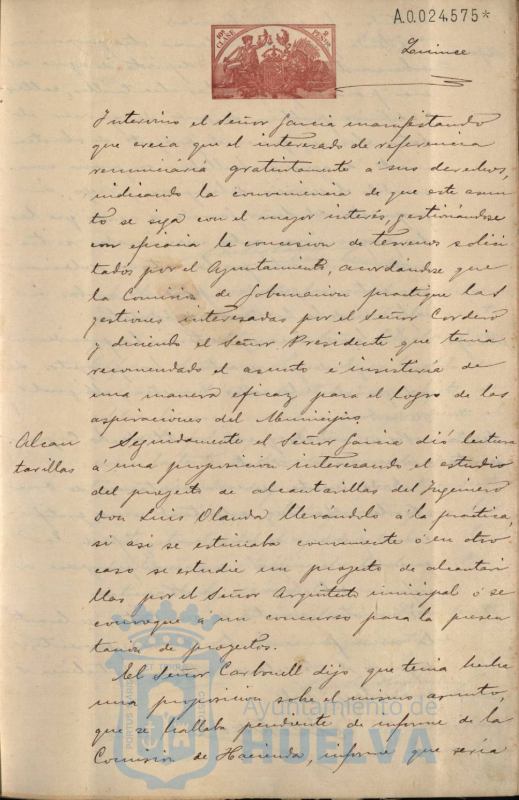 A.0.024.575*
10ª CLASE 2 PESTAS
Quince
Intervino el Señor Garcia manifestando
que creia que el interesado de referencia
renunciaria gratuitamente á sus derechos,
indicando la conveniencia de que este asun
to se siga con el mayor interés, gestionándose
con eficacia la concesion de terrenos solici
tados por el Ayuntamiento, acordándose que
la Comision de Gobernacion practique las
gestiones interesadas por el Señor Cordero
y diciendo el Señor Presidente que tenia
recomendado el asunto é insistiria de
una manera eficaz para el logro de las
aspiraciones del Municipio.
Alcan
tarillas
Seguidamente el Señor Garcia dió lectura
á una proposicion interesando el estudio
del proyecto de alcantarillas del Ingeniero
Don Luis Olanda llevándolo á la práctica,
si asi se estimaba conveniente ó en otro
caso se estudie un proyecto de alcantari
llas por el Señor Arquitecto municipal ó se
convoque á un concurso para la presen
tacion de proyectos.
El Señor Carbonell dijo que tenia hecha
una proposicion sobre el mismo asunto,
que se hallaba pendiente de informe de la
Comision de Hacienda, informe que seria
Ayuntamiento de
HUELVA